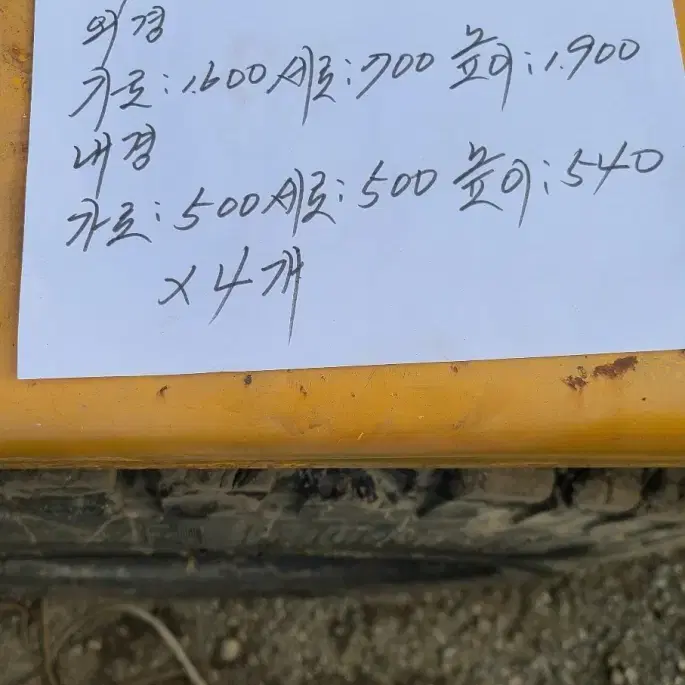 외경
가로: 1.600 세로: 700 높이: 1.900
내경
가로: 500 세로: 500 높이: 540
x 4개